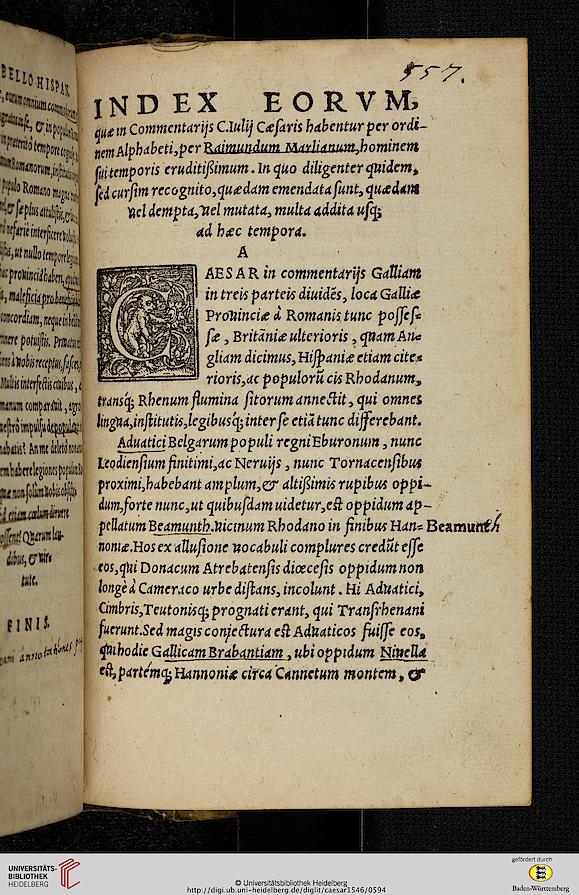 BELLO HISPAN.
FINIS.
557.
INDEX EORVM,
quæ in Commentarijs C.Iulij Cæsaris habentur per ordi-
nem Alphabeti, per Raimundum Marlianum, hominem
sui temporis eruditißimum. In quo diligenter quidem,
sed cursim recognito, quædam emendata sunt, quædam
uel dempta, uel mutata, multa addita usq;
ad hæc tempora.
A
CAESAR in commentarijs Galliam
in treis parteis diuidēs, loca Galliæ
Prouinciæ à Romanis tunc posses=
sæ, Britāniæ ulterioris, quam An=
gliam dicimus, Hispaniæ etiam cite=
rioris, ac populorū cis Rhodanum,
transq́; Rhenum flumina sitorum annectit, qui omnes
lingua, institutis, legibusq́; inter se etiā tunc differebant.
Aduatici Belgarum populi regni Eburonum, nunc
Leodiensium finitimi, ac Neruijs, nunc Tornacensibus
proximi, habebant amplum, & altißimis rupibus oppi-
dum, forte nunc, ut quibusdam uidetur, est oppidum ap-
pellatum Beamunth. uicinum Rhodano in finibus Han=
Beamunth
noniæ. Hos ex allusione uocabuli complures credūt esse
eos, qui Donacum Atrebatensis diœcesis oppidum non
longè à Cameraco urbe distans, incolunt. Hi Aduatici,
Cimbris, Teutonisq; prognati erant, qui Transrhenani
fuerunt. Sed magis coniectura est Aduaticos fuisse eos,
qui hodie Gallicam Brabantiam, ubi oppidum Niuella
est, partémq; Hannoniæ circa Cannetum montem, &
UNIVERSITÄTS-
BIBLIOTHEK
HEIDELBERG
© Universitätsbibliothek Heidelberg
http://digi.ub.uni-heidelberg.de/diglit/caesar1546/0594
gefördert durch
Baden-Württemberg